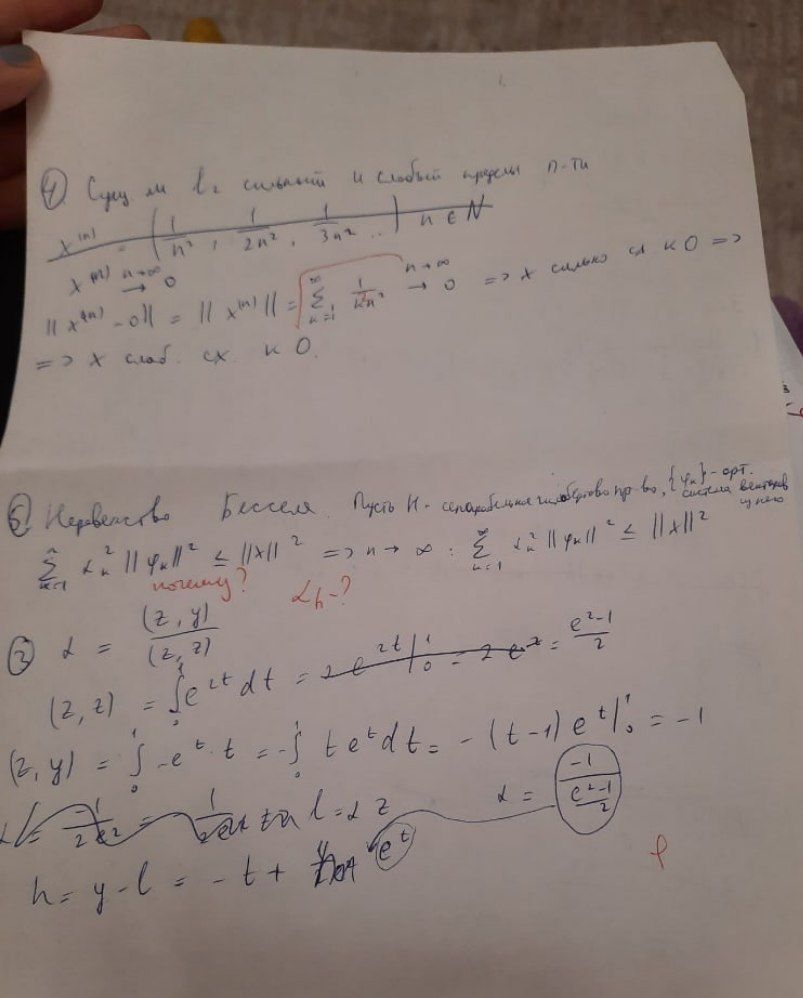 ④ Сущ. ли l₂ сильный и слабый пределы п-ти
x⁽ⁿ⁾ = (1/n², 1/2n², 1/3n² ...) n ∈ N
x⁽ⁿ⁾ n→∞ → 0
||x⁽ⁿ⁾ - 0|| = ||x⁽ⁿ⁾|| = ∑ₖ₌₁^∞ 1/kn² n→∞ → 0 => x сильно сх к 0 =>
=> x слаб. сх. к 0.
⑤ Неравенство Бесселя. Пусть H - сепарабельное гильбертово пр-во, {φₙ} - орт. система векторов у него
∑ₖ₌₁ⁿ αₖ² ||φₖ||² ≤ ||x||² => n → ∞ : ∑ₖ₌₁^∞ αₖ² ||φₖ||² ≤ ||x||²
почему? αₙ -?
② α = (z, y)/(z, z)
(z, z) = ∫₀¹ e²ᵗ dt = = (e²-1)/2
(z, y) = ∫₀¹ -eᵗ · t = -∫₀¹ t eᵗ dt = -(t-1) eᵗ|₀¹ = -1
l = α z α = -1/((e²-1)/2)
h = y - l = -t + eᵗ